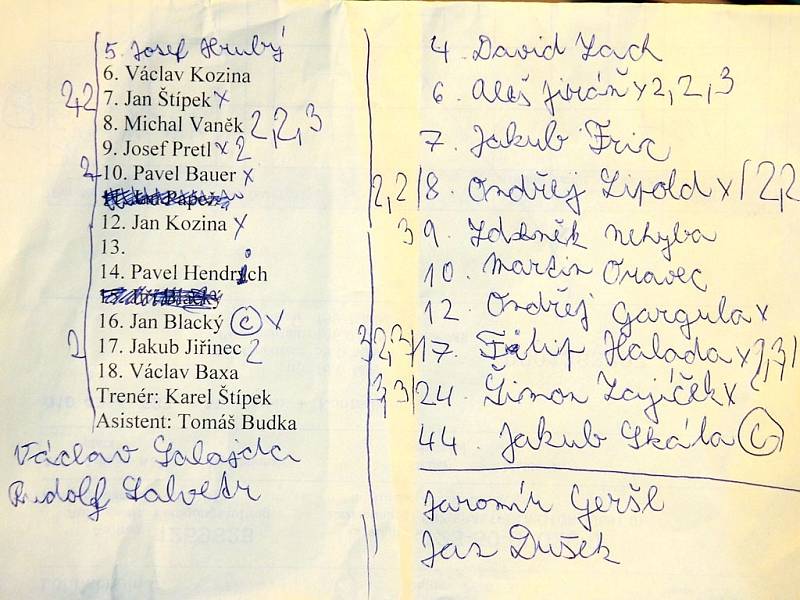 5. Josef Hrubý
6. Václav Kozina
2,2 7. Jan Štípek x
8. Michal Vaněk 2,2,3
9. Josef Pretl x 2
2 10. Pavel Bauer x
12. Jan Kozina x
13.
14. Pavel Hendrych
16. Jan Blacký C x
2 17. Jakub Jiřinec 2
18. Václav Baxa
Trenér: Karel Štípek
Asistent: Tomáš Budka
Václav Salajda
Rudolf Salvetr
4. David Zach
6. Aleš Jiráň x 2,2,3
7. Jakub Fric
2,2 8. Ondřej Lipold x 2,2
3 9. Zdeněk Nehyba
10 Martin Oravec
12. Ondřej Gargula x
3 2,3 17. Filip Halada x 2,3
3,3 24. Šimon Zajíček x
44. Jakub Skála C
Jaromír Geršl
Jan Dušek